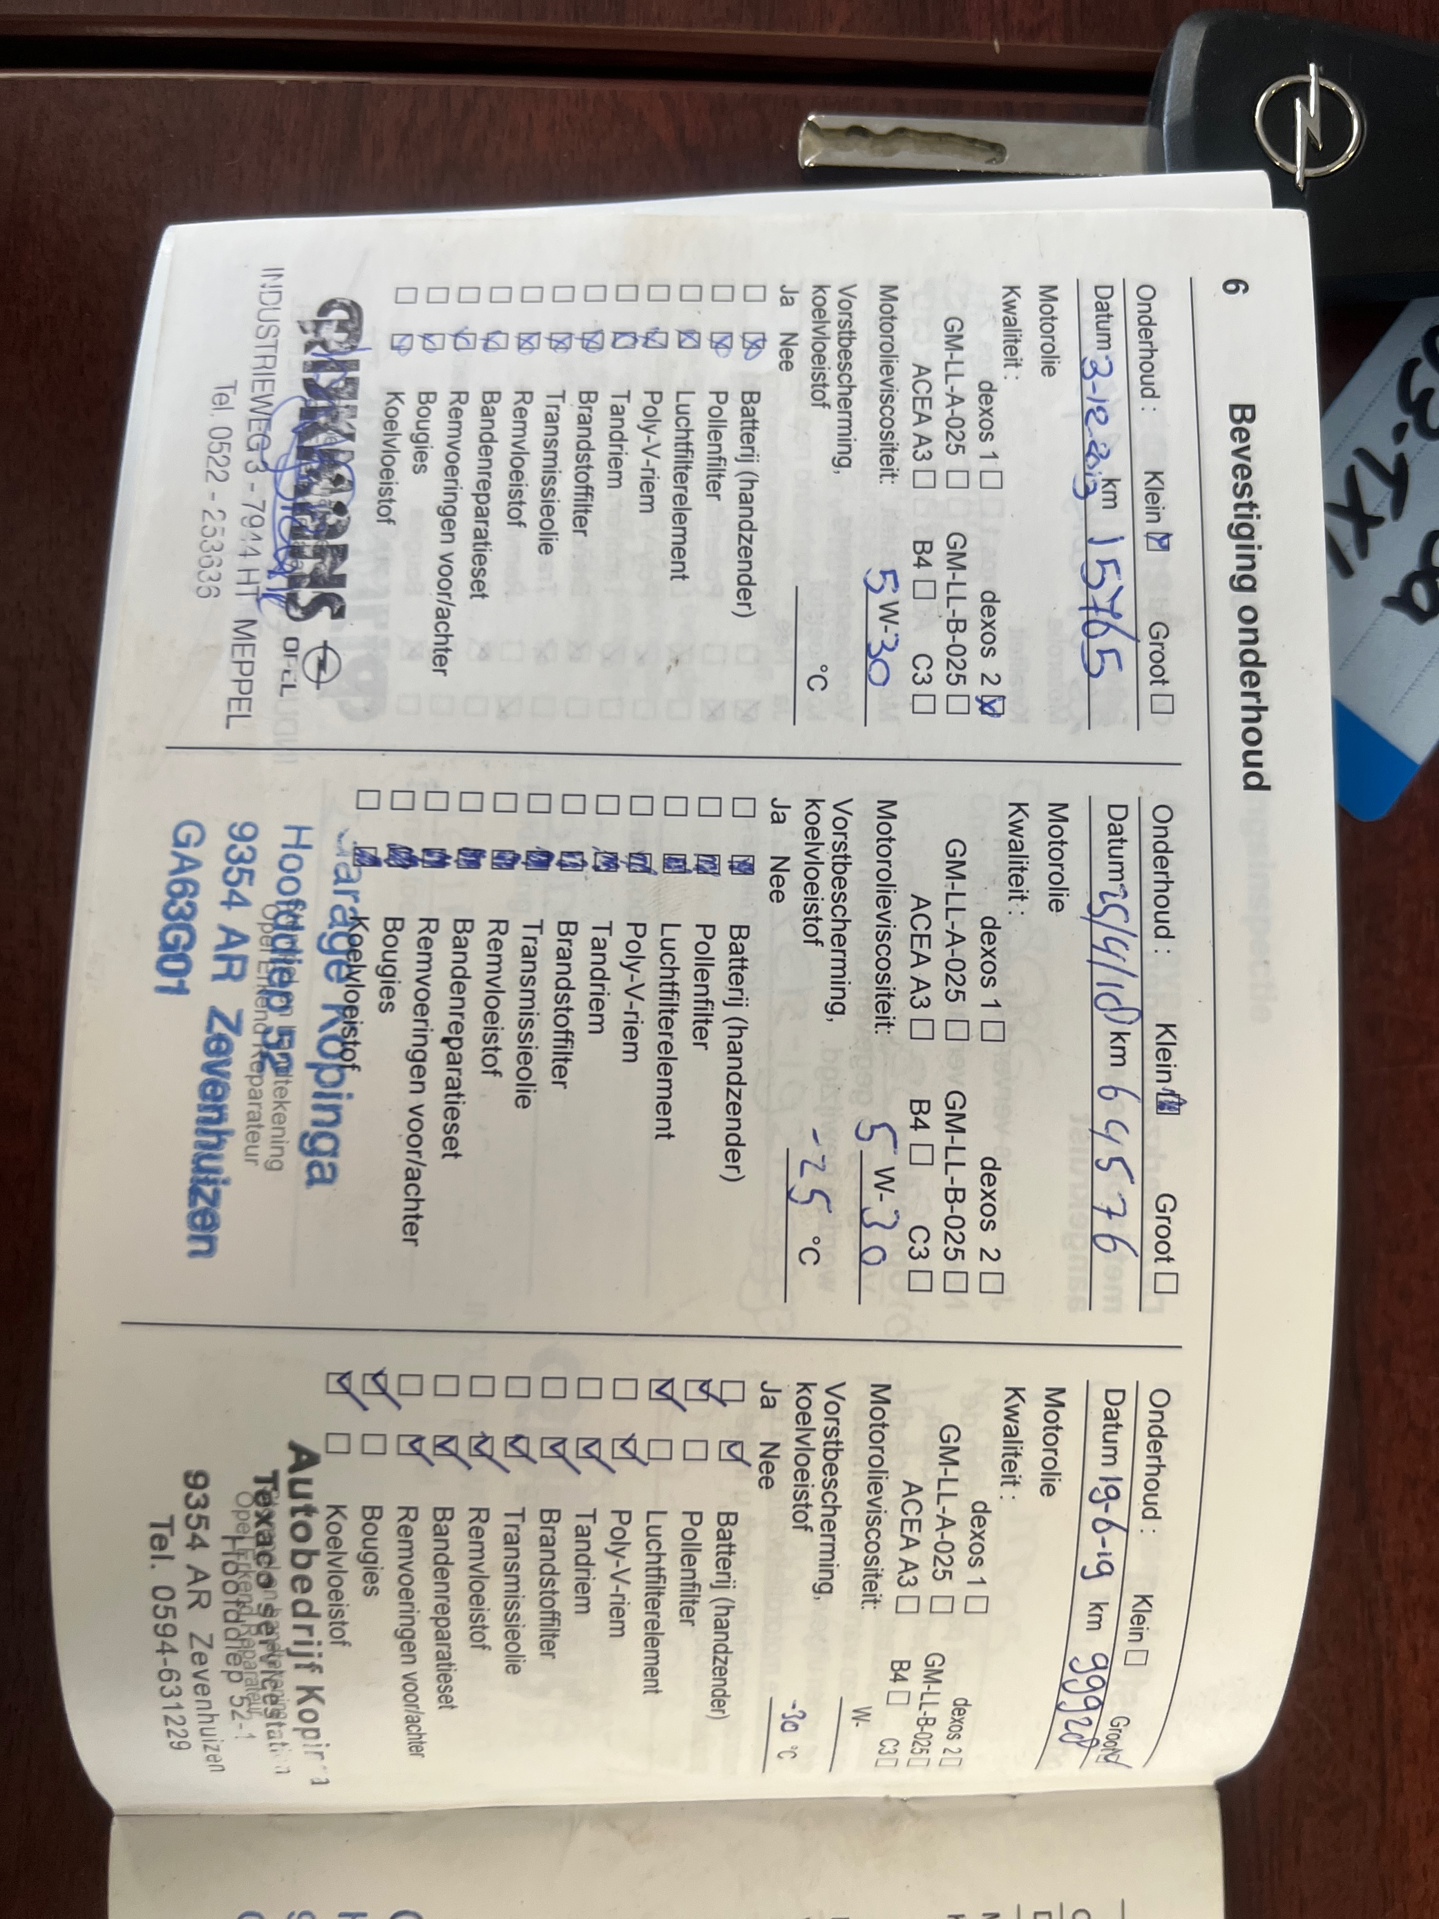 6 Bevestiging onderhoud
Onderhoud : Klein ☑ Groot ☐
Datum 3-12-2013 km 15765
Motorolie
Kwaliteit :
dexos 1 ☐ dexos 2 ☒
GM-LL-A-025 ☐ GM-LL-B-025 ☐
ACEA A3 ☐ B4 ☐ C3 ☐
Motorolieviscositeit: 5 W-30
Vorstbescherming,
koelvloeistof °C
Ja Nee
☐ ☒ Batterij (handzender)
☐ ☒ Pollenfilter
☐ ☒ Luchtfilterelement
☐ ☒ Poly-V-riem
☐ ☒ Tandriem
☐ ☒ Brandstoffilter
☐ ☒ Transmissieolie
☐ ☒ Remvloeistof
☐ ☒ Bandenreparatieset
☐ ☒ Remvoeringen voor/achter
☐ ☒ Bougies
☐ ☒ Koelvloeistof
OPEL
INDUSTRIEWEG 3 - 7944 HT MEPPEL
Tel. 0522 - 253636
Onderhoud : Klein ☒ Groot ☐
Datum km 64576
Motorolie
Kwaliteit :
dexos 1 ☐ dexos 2 ☐
GM-LL-A-025 ☐ GM-LL-B-025 ☐
ACEA A3 ☐ B4 ☐ C3 ☐
Motorolieviscositeit: 5 W-30
Vorstbescherming,
koelvloeistof -25 °C
Ja Nee
☐ ☒ Batterij (handzender)
☐ ☒ Pollenfilter
☐ ☒ Luchtfilterelement
☐ ☒ Poly-V-riem
☐ ☒ Tandriem
☐ ☒ Brandstoffilter
☐ ☒ Transmissieolie
☐ ☒ Remvloeistof
☐ ☒ Bandenreparatieset
☐ ☒ Remvoeringen voor/achter
☐ ☒ Bougies
☐ ☒ Koelvloeistof
Garage Kopinga
Hoofddiep 52
Opel Erkend Reparateur
9354 AR Zevenhuizen
GA63G01
Onderhoud : Klein ☐ Groot ☑
Datum 19-6-19 km 99928
Motorolie
Kwaliteit :
dexos 1 ☐ dexos 2 ☐
GM-LL-A-025 ☐ GM-LL-B-025 ☐
ACEA A3 ☐ B4 ☐ C3 ☐
Motorolieviscositeit: W-
Vorstbescherming,
koelvloeistof -30 °C
Ja Nee
☐ ☑ Batterij (handzender)
☑ ☐ Pollenfilter
☑ ☐ Luchtfilterelement
☐ ☑ Poly-V-riem
☐ ☑ Tandriem
☐ ☑ Brandstoffilter
☐ ☑ Transmissieolie
☐ ☑ Remvloeistof
☐ ☑ Bandenreparatieset
☐ ☑ Remvoeringen voor/achter
☑ ☐ Bougies
☑ ☐ Koelvloeistof
Autobedrijf
Texaco
Opel Erkend Reparateur
Hoofddiep 52-1
9354 AR Zevenhuizen
Tel. 0594-631229